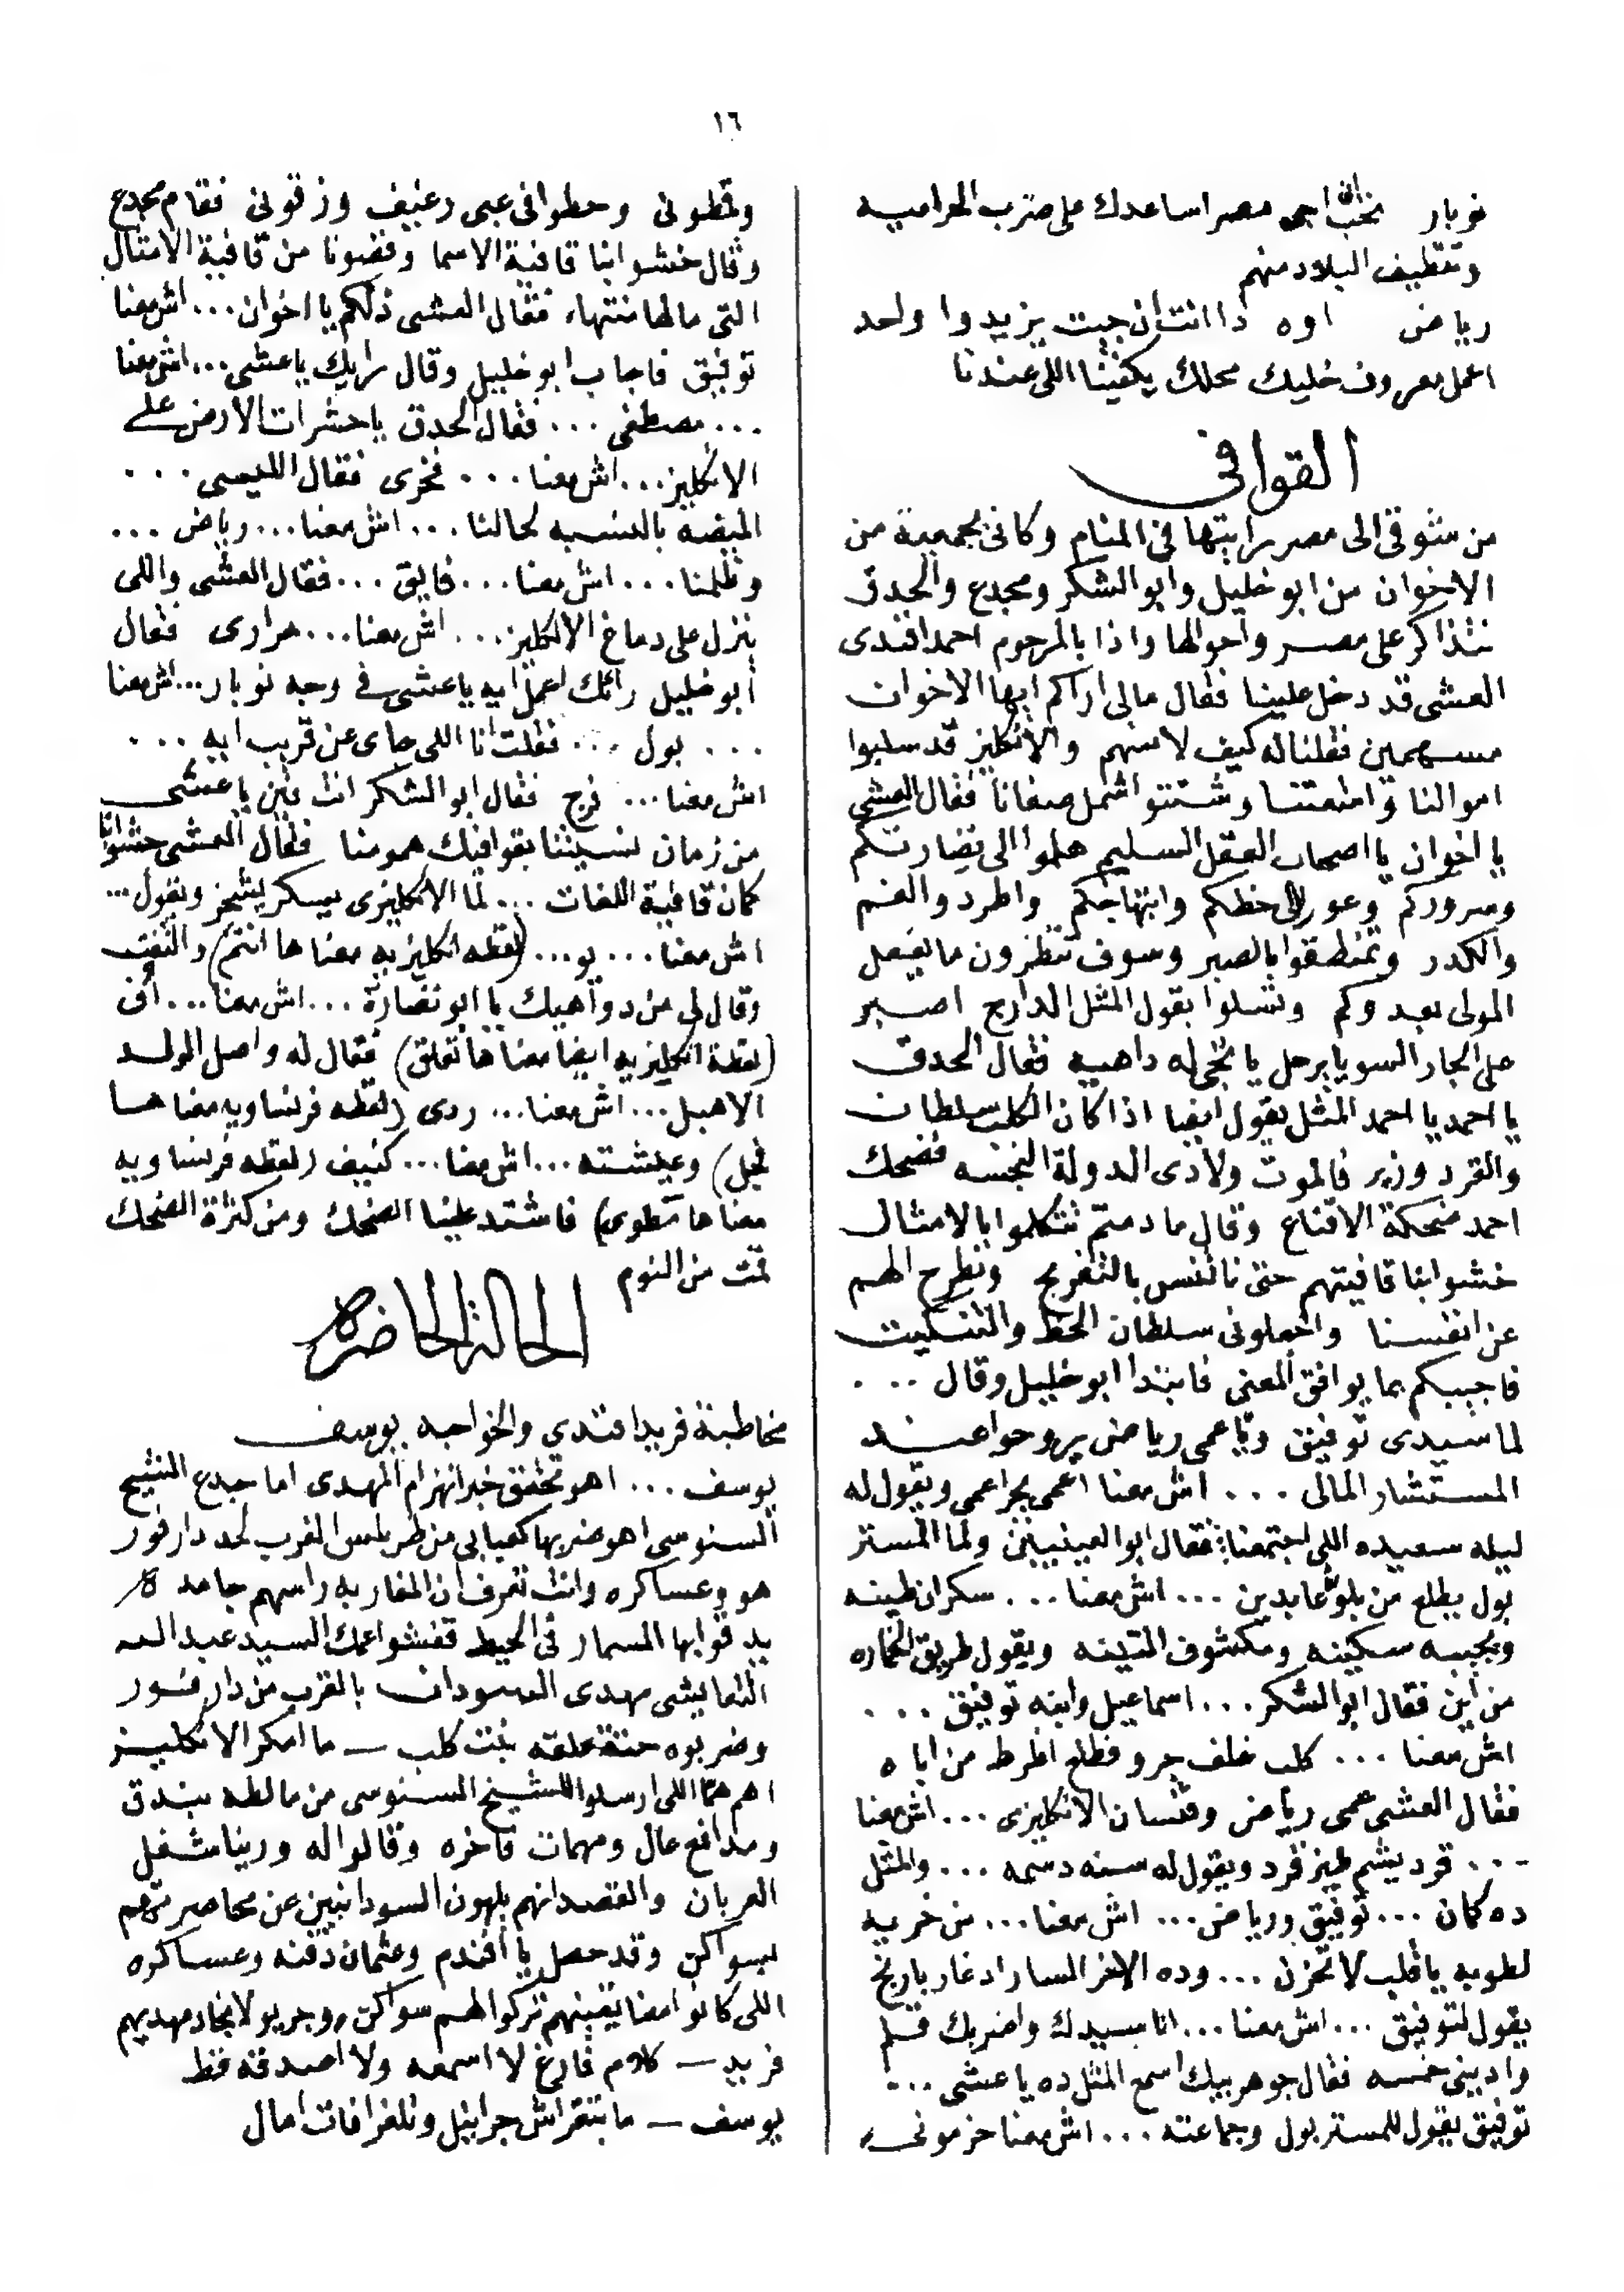 ١٦
نوبار تحب اني اجى مصر اساعدك على ضرب الحراميه
وتنظيف البلاد منهم
رياض اوه دا انت ان جيت يزيدوا واحد
اعمل معروف خليك محلك يكفينا اللى عندنا
القوافى
من شوقى الى مصر رايتها فى المنام وكانى بجمعية من
الاخوان من ابو خليل وابو الشكر ومجدع والحدق
نتذاكر على مصر واحوالها واذا بالمرحوم احمد افندى
العشى قد دخل علينا فقال مالى اراكم ايها الاخوان
مسهمين فقلنا له كيف لا نسهم والانكليز قد سلبوا
اموالنا وامتعتنا وشتتوا شمل صفانا فقال العشى
يا اخوان يا اصحاب العقل السليم هلموا الى نضارتكم
وسروركم وعوروا الى حظكم وابتهاجكم واطردوا الغم
والكدر وتمنطقوا بالصبر وسوف تنظرون ما يفعل
المولى بعدوكم وتسلوا بقول المثل الدارج اصبر
على الجار السو يا يرحل يا تجى له داهيه فقال الحدق
يا احمد يا احمد المثل يقول ايضا اذا كان الكلب سلطان
والقرد وزير فالموت ولا دى الدولة النجسه فضحك
احمد ضحكة الاقناع وقال ما دمتم تتكلموا بالامثال
خشوا بنا قافيتهم حتى نأتنس بالتفريج ونطرح الهم
عن انفسنا واجعلونى سلطان الحظ والتنكيت
فاجيبكم بما يوافق المعنى فابتدا ابو خليل وقال ...
لما سيدى توفيق ويا عمى رياض يروحوا عند
المستشار المالى ... اش معنا اعمى يجر اعمى ويقول له
ليله سعيده اللى اجتمعنا فقال ابو العينين ولما المستر
بول يطلع من بلو عابدين ... اش معنا ... سكران طينه
وبجيبه سكينه ومكشوف التينه ويقول طريق الخماره
من اين فقال ابو الشكر ... اسماعيل وابنه توفيق ...
اش معنا ... كلب خلف جرو فطلع اظرط من اباه
فقال العشى عمى رياض وفنسان الانكليزى ... اش معنا
... قرد يشم طيز قرد ويقول له سنه دسمه ... والمثل
ده كمان ... توفيق ورياض ... اش معنا ... من خريه
لطوبه يا قلب لا تحزن ... وده الاخر السارادغار بارنج
يقول لتوفيق ... اش معنا ... انا سيدك واضربك قلم
واديني خمسه فقال جوهر بيك اسمع المثل ده يا عشى ...
توفيق يقول للمستر بول وجماعته ... اش معنا خزمونى
ولقطونى وحطوا فى عبى رغيف وزقونى فقام مجدع
وقال خشوا بنا قافية الاسما وفضونا من قافية الامثال
التى مالها منتهاء فقال العشى ذلكم يا اخوان ... اش معنا
توفيق فاجاب ابو خليل وقال رايك يا عشى ... اش معنا
... مصطفى ... فقال الحدق يا حشرات الارض على
الانكليز ... اش معنا ... فخرى فقال الليسى ...
الميضه بالنسبه لحالنا ... اش معنا ... رياض ...
وظلمنا ... اش معنا ... فايق ... فقال العشى واللى
ينزل على دماغ الانكليز ... اش معنا ... هرارى فقال
ابو خليل رائك اعمل ايه يا عشى فى وجه نوبار ... اش معنا
... بول ... فقلت انا اللى جاى عن قريب ايه ...
اش معنا ... فرج فقال ابو الشكر انت فين يا عشى
من زمان نسيتنا بقوافيك همومنا فقال العشى خشوا بنا
كمان قافية اللغات ... لما الانكليزى يسكر يشخر ويقول ...
اش معنا ... يو ... (لفظه انكليزيه معناها انتم) والتفت
وقال لى من دواهيك يا ابو نضارة ... اش معنا ... اف
(لفظة انكليزيه ايضا معناها تعلق) فقال له واصل الولد
الاهبل ... اش معنا ... ردى (لفظه فرنساويه معناها
فجل) وعيشته ... اش معنا ... كنيف (لفظه فرنساويه
معناها مطوى) فاشتد علينا الضحك ومن كثرة الضحك
قمت من النوم
الحالة الحاضره
مخاطبة فريد افندى والخواجه يوسف
يوسف ... اهو تحقق خبر انهزام المهدى اما جدع الشيخ
السنوسى اهو ضربها كعبابى من طربلس الغرب لحد دارفور
هو وعساكره وانت تعرف ان المغاربه راسهم جامده
يدقوا بها المسمار فى الحيط قفشوا عمك السيد عبد الله
التعايشى مهدى السودان بالقرب من دارفور
وضربوه حتة علقه بنت كلب — ما امكر الانكليز
اهم هما اللى ارسلوا للشيخ السنوسى من مالطه بندق
ومدافع عال ومهمات فاخره وقالوا له ورينا شغل
العربان والقصد انهم يلهون السودانيين عن محاصرتهم
بسواكن وقد حصل يا افندم وعثمان دقنه وعساكره
اللى كانوا مضايقينهم تركوا لهم سواكن وجريوا لانجاد مهديهم
فريد — كلام فارغ لا اسمعه ولا اصدقه قط
يوسف — ما بتقراش جرانيل وتلغرافات امال